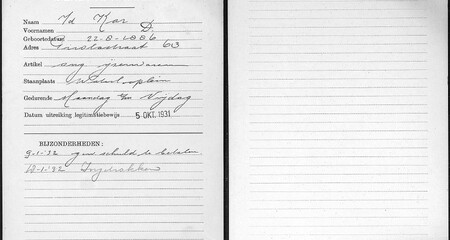 Naam v/d Kar
Voornamen D.
Geboortedatum 22-8-1886
Adres 63
Artikel ong. ijzerwaren
Staanplaats Waterlooplein
Gedurende Maandag t/m Vrijdag
Datum uitreiking legitimatiebewijs 5 OKT. 1931
BIJZONDERHEDEN:
9-1-'32 geen schuld te betalen
-1-'32 Ingetrokken